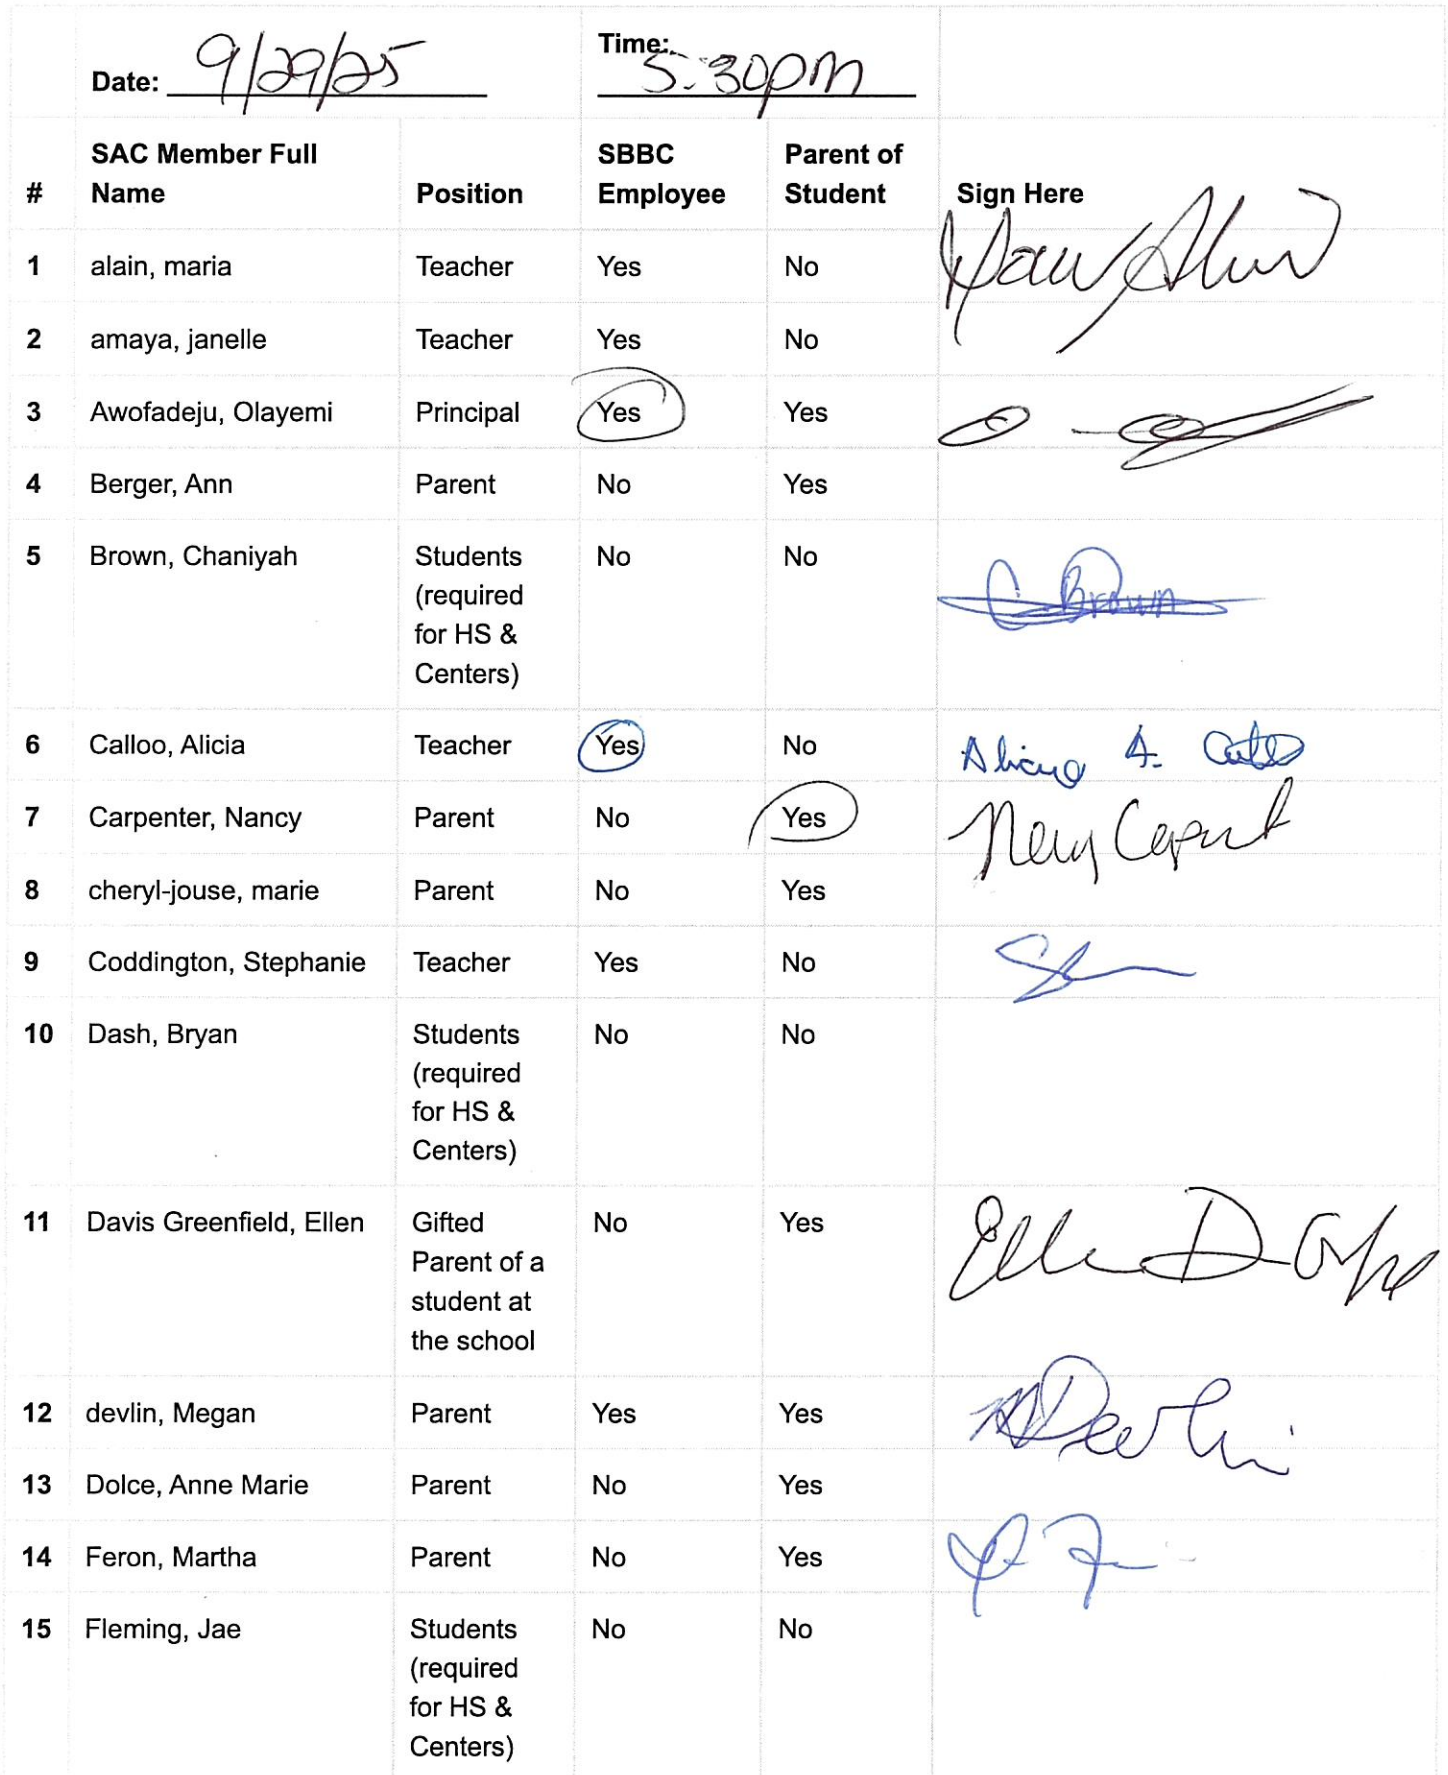 Date: 9/29/25 Time: 5:30pm
# SAC Member Full Name Position SBBC Employee Parent of Student Sign Here
1 alain, maria Teacher Yes No
2 amaya, janelle Teacher Yes No
3 Awofadeju, Olayemi Principal Yes Yes
4 Berger, Ann Parent No Yes
5 Brown, Chaniyah Students No No C Brown
(required
for HS &
Centers)
6 Calloo, Alicia Teacher Yes No Alicia A.
7 Carpenter, Nancy Parent No Yes
8 cheryl-jouse, marie Parent No Yes
9 Coddington, Stephanie Teacher Yes No
10 Dash, Bryan Students No No
(required
for HS &
Centers)
11 Davis Greenfield, Ellen Gifted No Yes
Parent of a
student at
the school
12 devlin, Megan Parent Yes Yes M Devlin
13 Dolce, Anne Marie Parent No Yes
14 Feron, Martha Parent No Yes
15 Fleming, Jae Students No No
(required
for HS &
Centers)